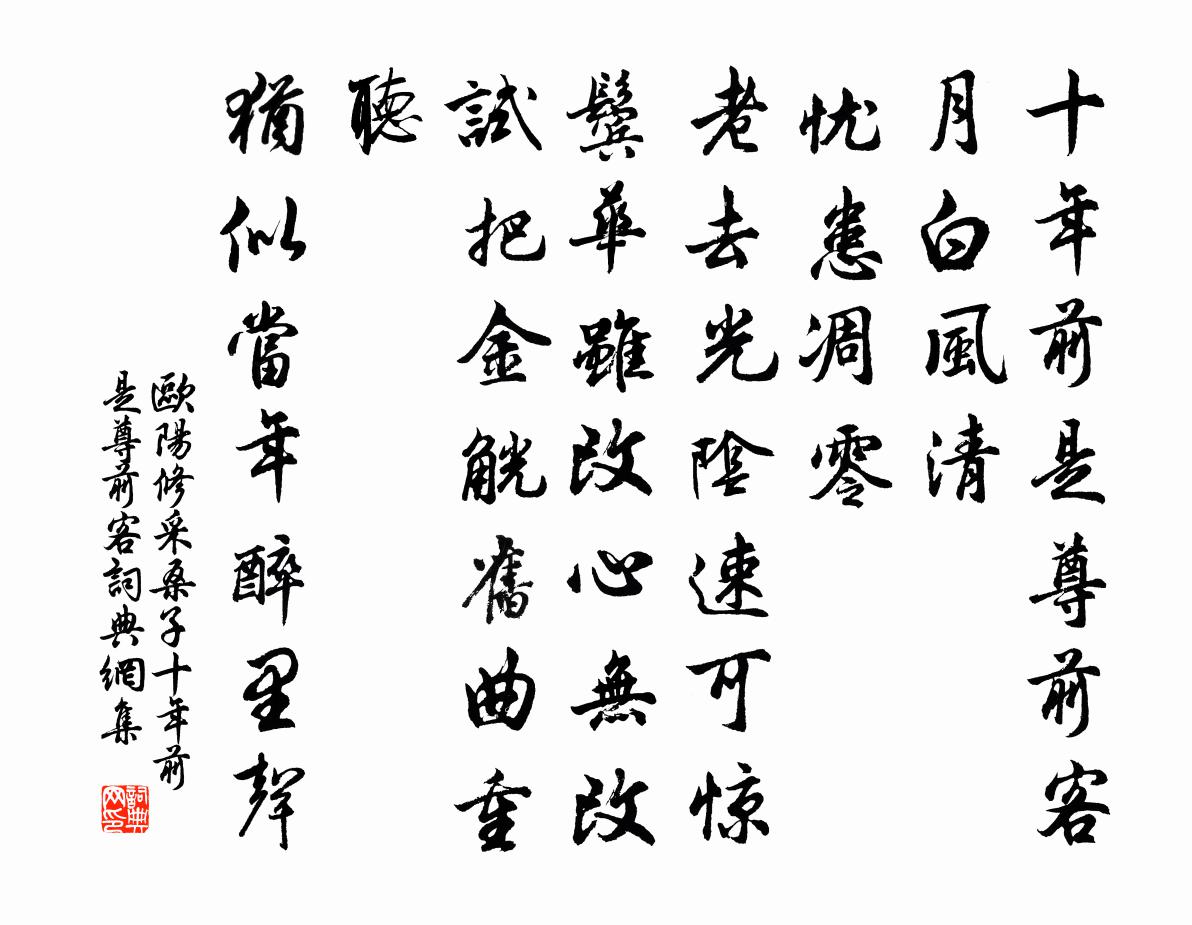 十年前是尊前客
月白風清
忧患凋零
老去光陰速可惊
鬓華雖改心無改
試把金觥舊曲重
聽
猶似當年醉里聲
歐陽修采桑子十年前
是尊前客詞典網集
詞典
网印